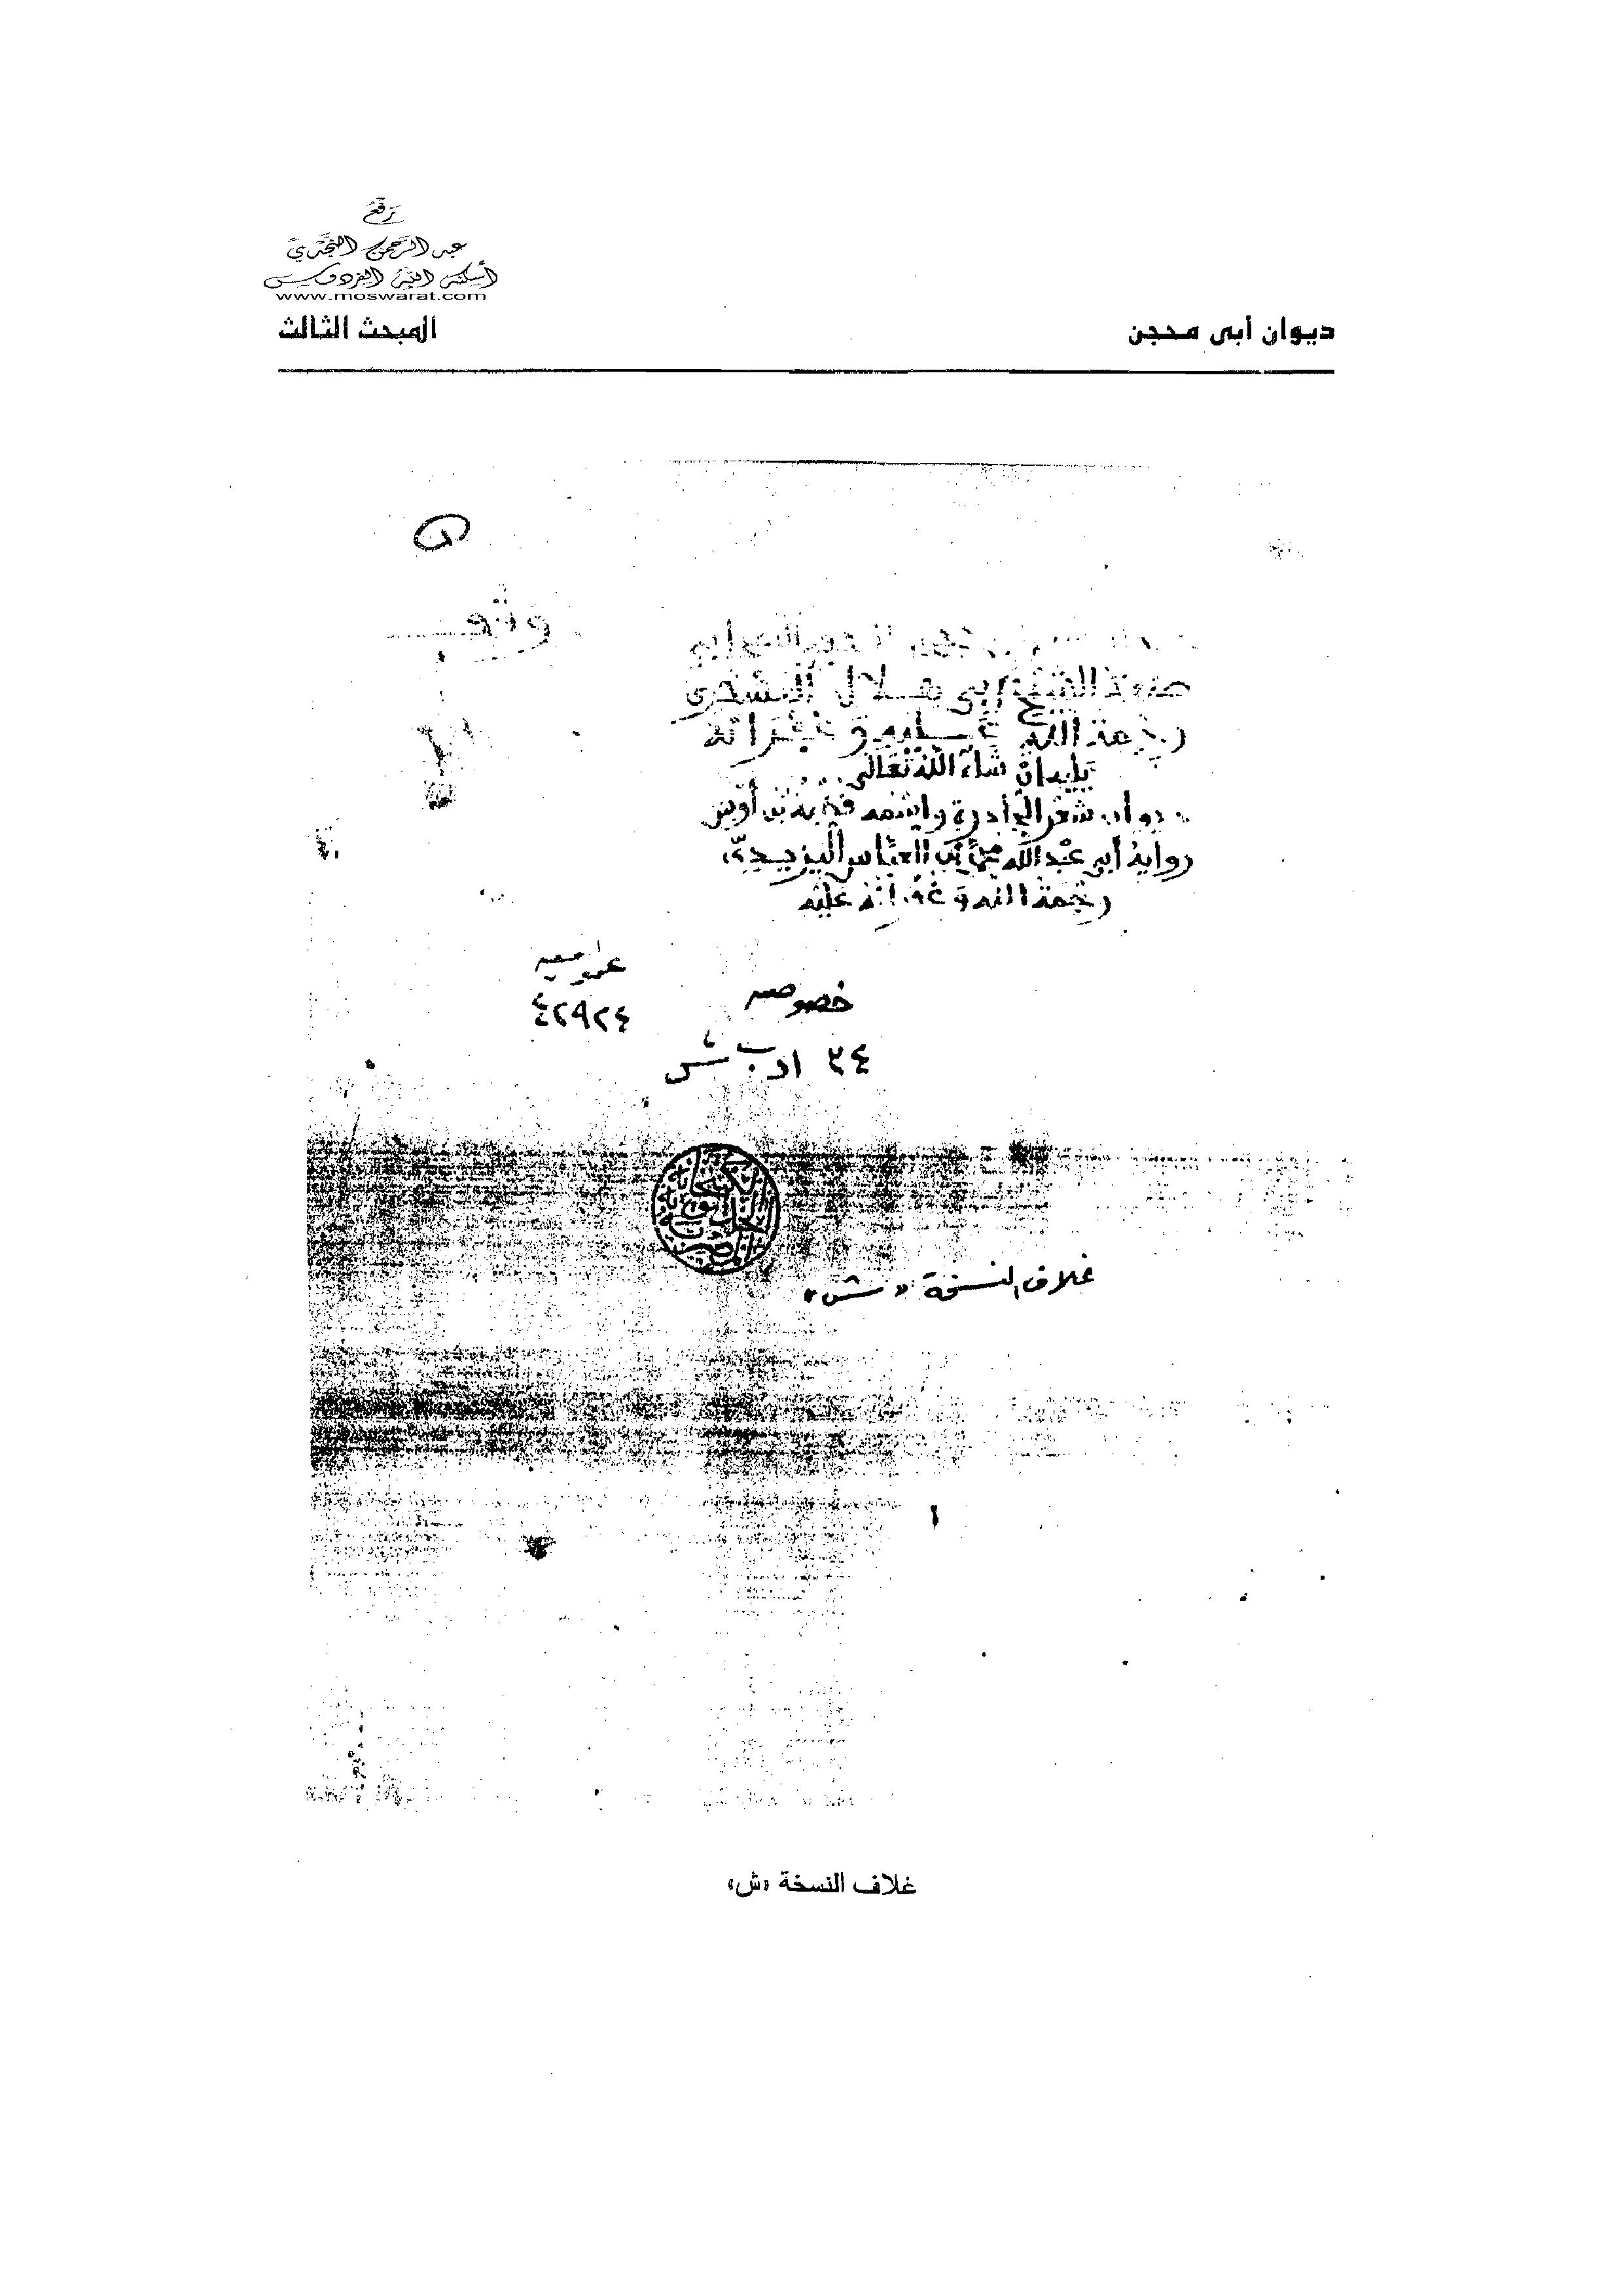 رفع
عبد الرحمن النجدي
أسكنه الله الفردوس
www.moswarat.com
ديوان أبي محجن
المبحث الثالث
صنعة الشيخ أبي هلال
رحمة الله عليه وغفرانه
يليه ان شاء الله تعالى
ديوان شعر الحادرة واسمه قطبة بن أوس
رواية أبي عبد الله محمد بن العباس اليزيدي
رحمة الله وغفرانه عليه
عموميه
٤٢٩٢٤
خصوصيه
٣٤ ادب ش
غلاف النسخة «ش»
غلاف النسخة «ش»